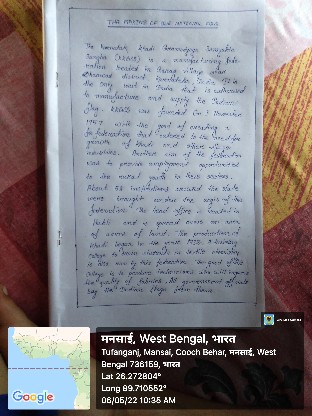 THE MAKING OF OUR NATIONAL FLAG
The Karnataka Khadi Gramodyoga Samyukta
Sangha (KKGSS) is a manufacturing fede-
ration located in Bengeri village of
Dharwad district, Karnataka, India. It is
the only unit in India that is authorised
to manufacture and supply the Indian
flag. KKGSS was founded on 1 November
1957 with the goal of creating a
federation that
growth of Khadi and other village
industries. Another aim of the federation
was to provide employment opportunities
to the rural youth in these sectors.
About 58 institutions around the state
were brought under the aegis of this
federation. The head office is located in
Hubli and is spread over an area
of acres of land. The production of
Khadi began in the year 1982. A training
college to train students in textile chemistry
is also run by this federation. The goal of this
college is to produce technicians who will improve
the quality of fabrics. All government officials
buy the Indian flag from them.
मनसाई, West Bengal, भारत
Tufanganj, Mansai, Cooch Behar, मनसाई, West
Bengal 736159, भारत
Lat 26.272804°
Long 89.710552°
06/05/22 10:35 AM
Google